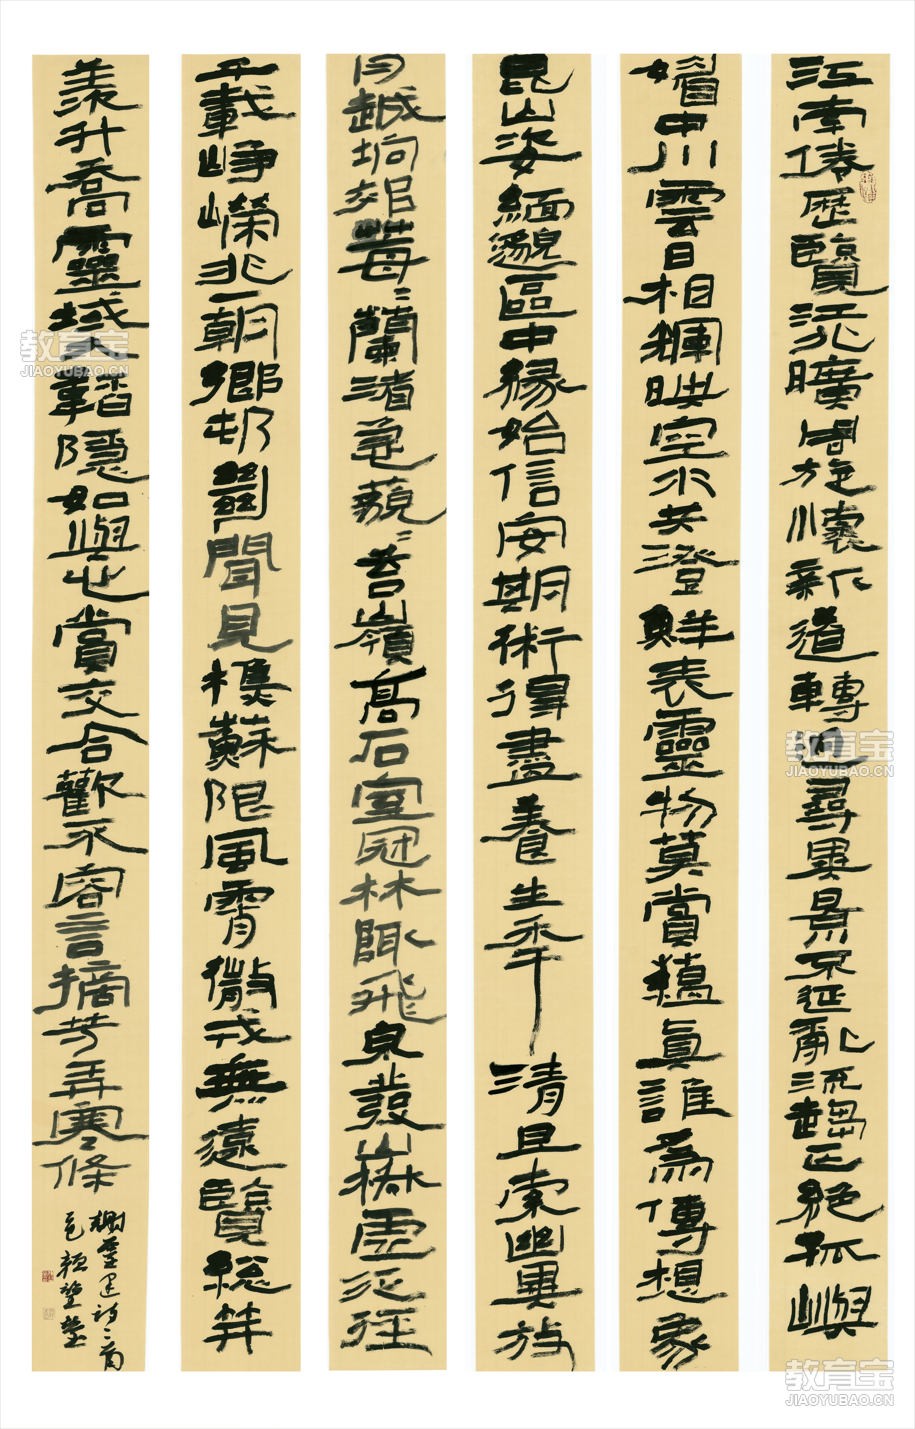 江南倦歷覽江北曠周旋懷新道轉迥尋異景不延亂流趨正絕孤嶼
媚中川雲日相輝映空水共澄鮮表靈物莫賞蘊真誰為傳想象
昆山姿緬邈區中緣始信安期術得盡養生年清旦索幽異放
舟越坰郊莓〻蘭渚急藐〻苔嶺高石室冠林陬飛泉發山椒虛泛徑
千載崢嶸非一朝鄉村絕聞見樵蘇限風霄微戎無遠覽總笄
羨升喬靈域久韜隱如與心賞交合歡不容言摘芳弄寒條
謝靈運詩二首
教育宝
JIAOYUBAO.CN
教育宝
JIAOYUBAO.CN
教育宝
JIAOYUBAO.CN